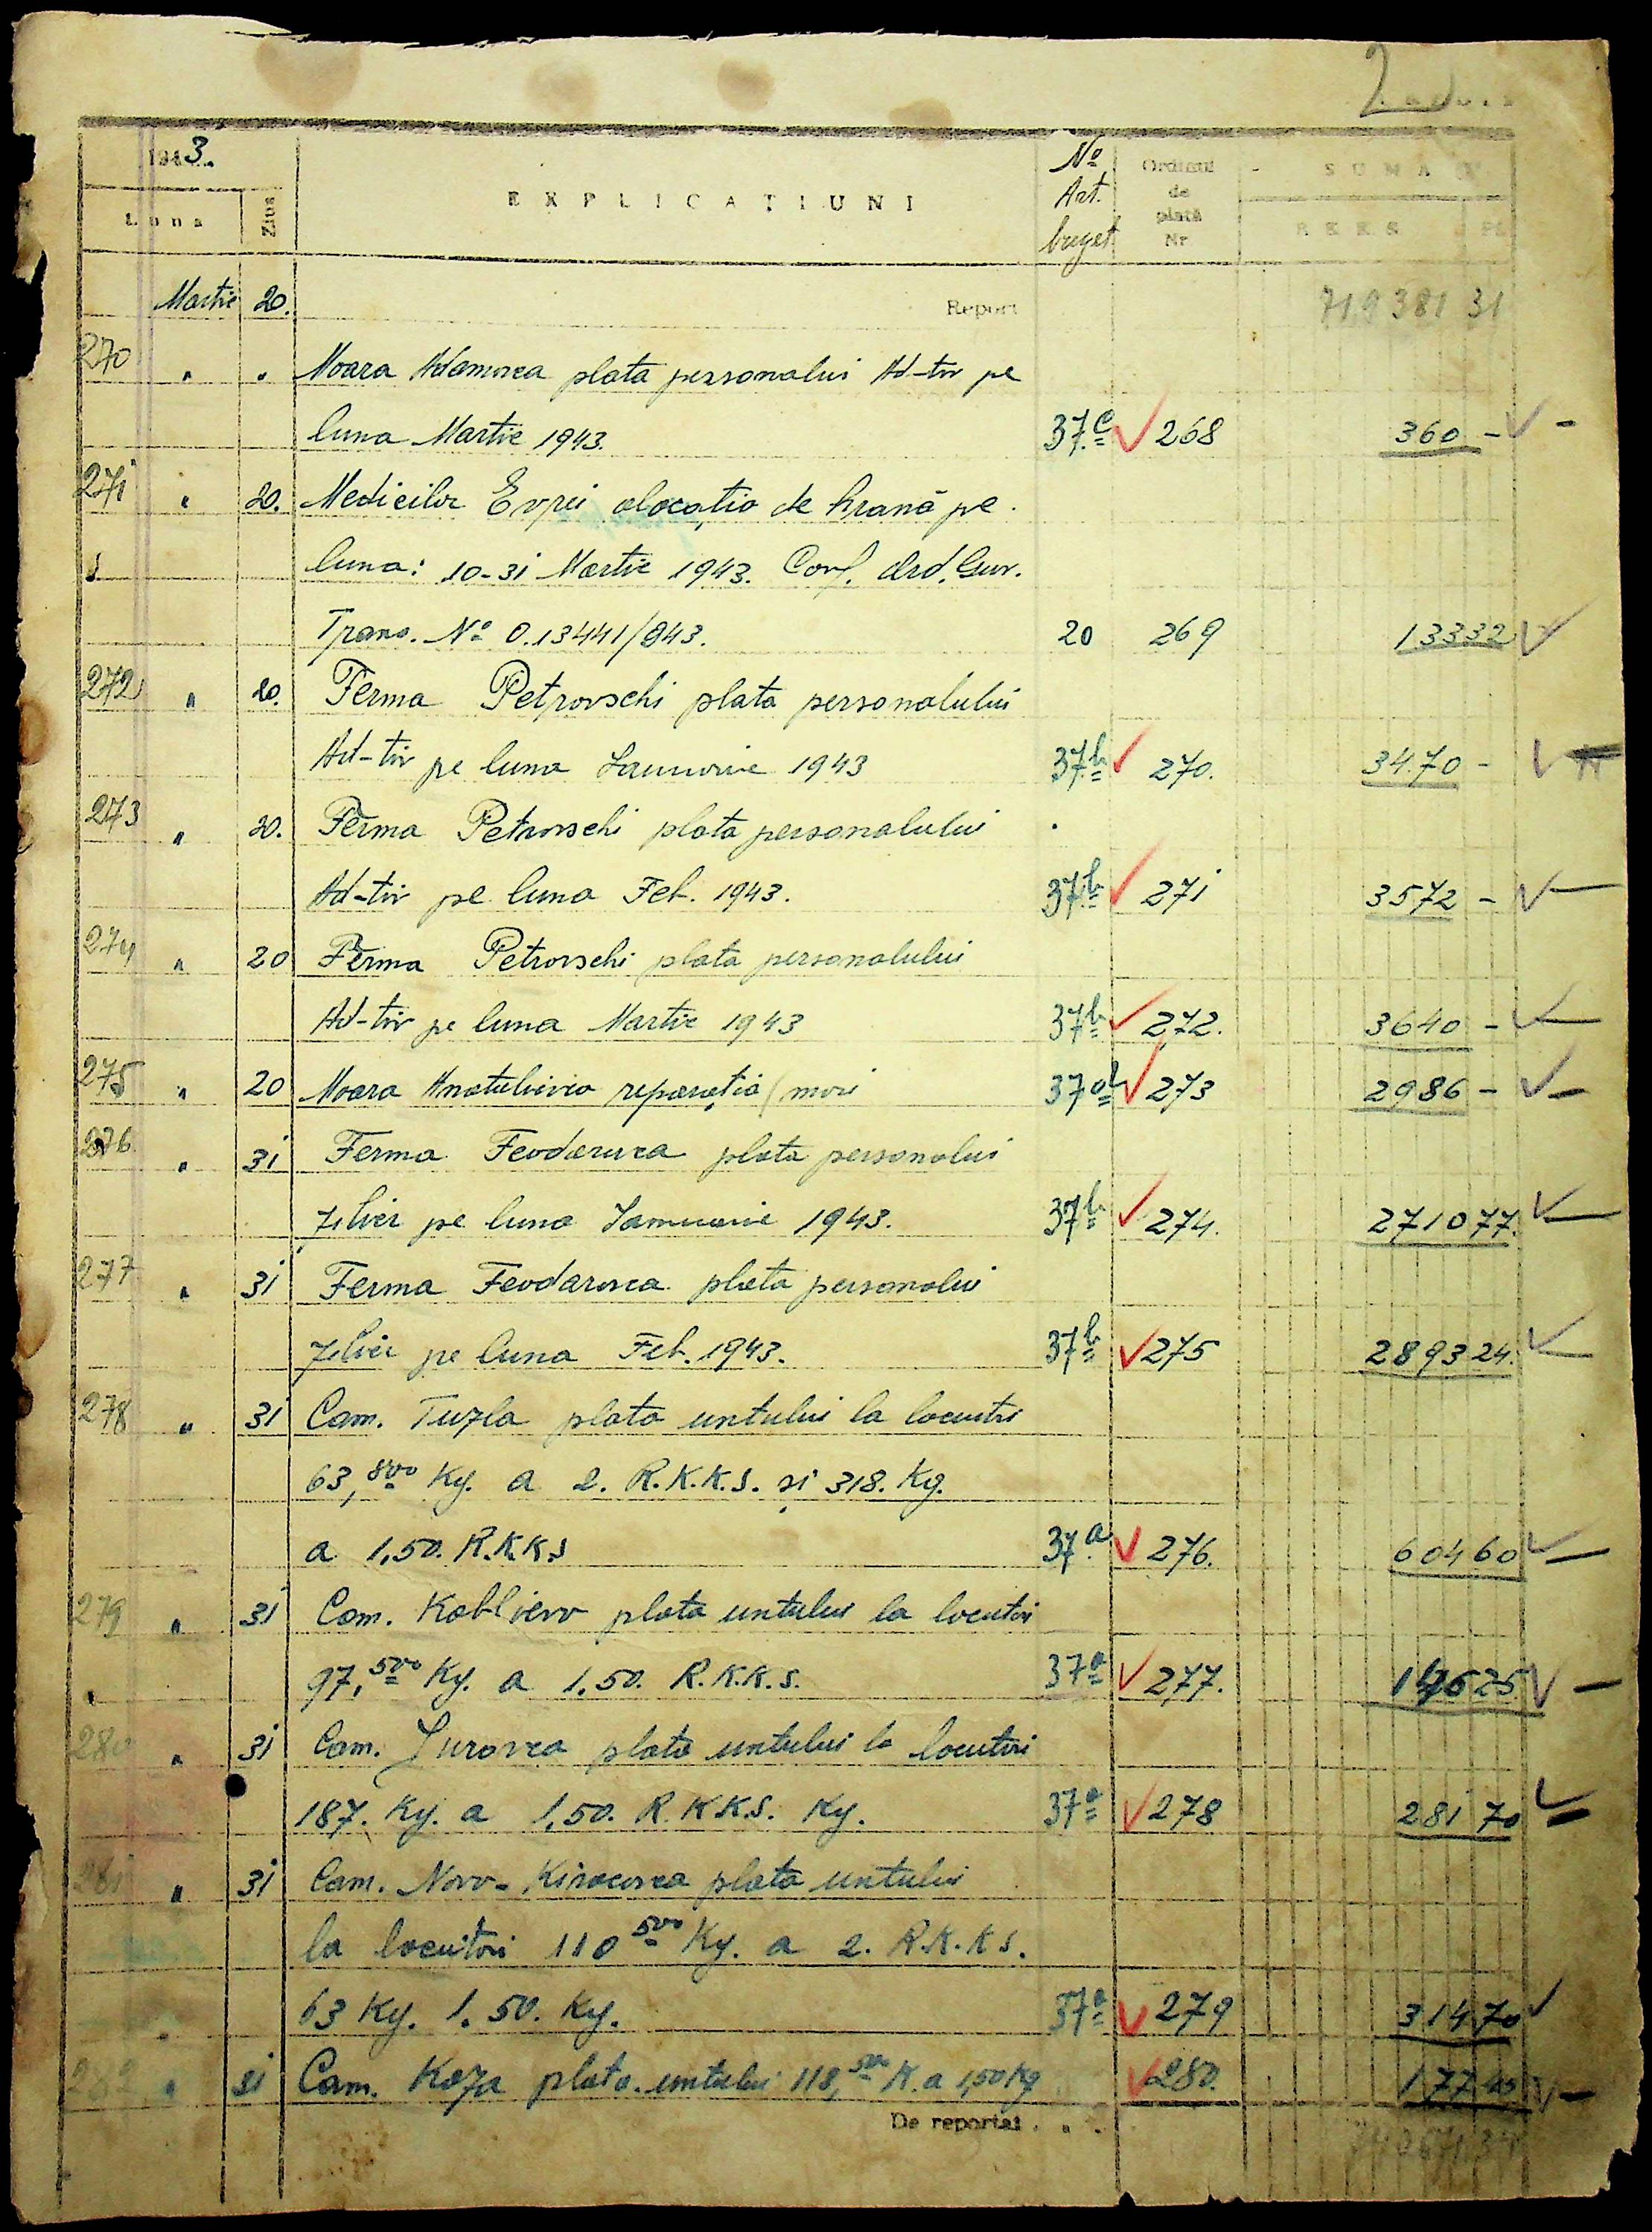 1943.
Luna Ziua EXPLICAȚIUNI No Art. buget Ordinul de plată Nr. SUMA
RKKS Pf.
Martie 20. Report 719381 31
270 " " Moara Adamovca plata personalui Ad-tiv pe
luna Martie 1943. 37.c 268 360 -
271 " 20. Medicilor Evrei alocația de hrană pe
luna: 10-31 Martie 1943. Conf. Ord. Guv.
Trans. No 0.13441/943. 20 269 13332
272 " 20. Ferma Petrovschi plata personalului
Ad-tiv pe luna Ianuarie 1943 37.b 270. 3470 -
273 " 20. Ferma Petrovschi plata personalului
Ad-tiv pe luna Feb. 1943. 37.b 271 3572 -
274 " 20 Ferma Petrovschi plata personalului
Ad-tiv pe luna Martie 1943 37b 272. 3640 -
275 " 20 Moara reparația morii 37 273 2986 -
276 " 31 Ferma Feodarovca plata personalui
zilier pe luna Ianuarie 1943. 37b 274. 2710 77.
277 " 31 Ferma Feodarovca plata personalui
zilier pe luna Feb. 1943. 37b 275 2893 24.
278 " 31 Com. Tuzla plata untului la locuitri
63,800 Kg. a 2. R.K.K.S. și 318. Kg.
a 1,50. R.K.K.S 37.a 276. 604 60
279 " 31 Com. Koblievo plata untului la locuitori
97,500 Kg. a 1.50. R.K.K.S. 37a 277. 146 25
280 " 31 Com. plata untului la locuitori
187. Kg. a 1,50. R.K.K.S. Kg. 37a 278 281 70
281 " 31 Com. Novo- plata untului
la locuitori 110 500 Kg. a 2. R.K.K.S.
63 Kg. 1.50. Kg. 37a 279 314 70
282 " 31 Com. Koza plata untului 118,500 K. a 1,50 Kg 280. 177 40
De reportat . . .